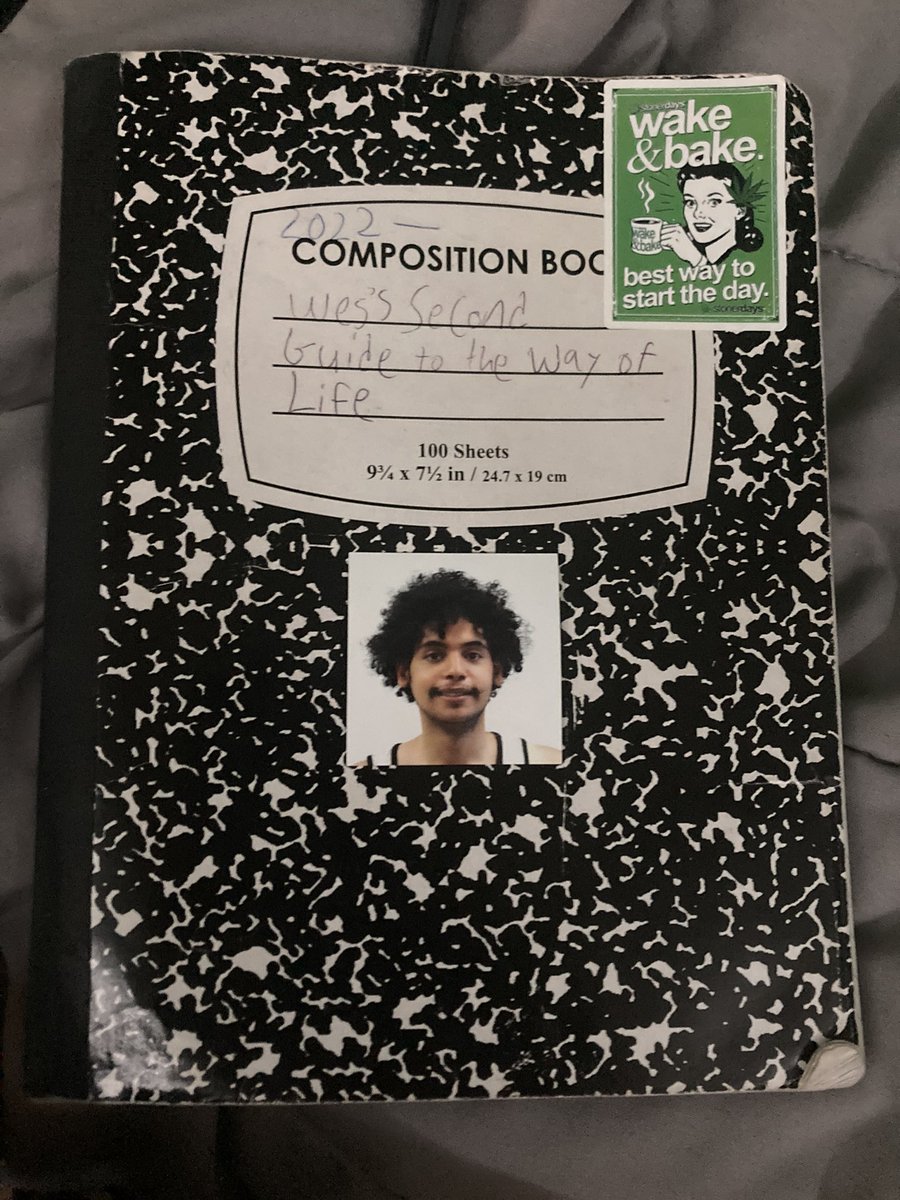 stonerdays
wake
&bake.
wake
&bake
best way to
start the day.
stonerdays
2022 —
COMPOSITION BOO
Wes's Second
Guide to the Way of
Life
100 Sheets
9¾ x 7½ in / 24.7 x 19 cm